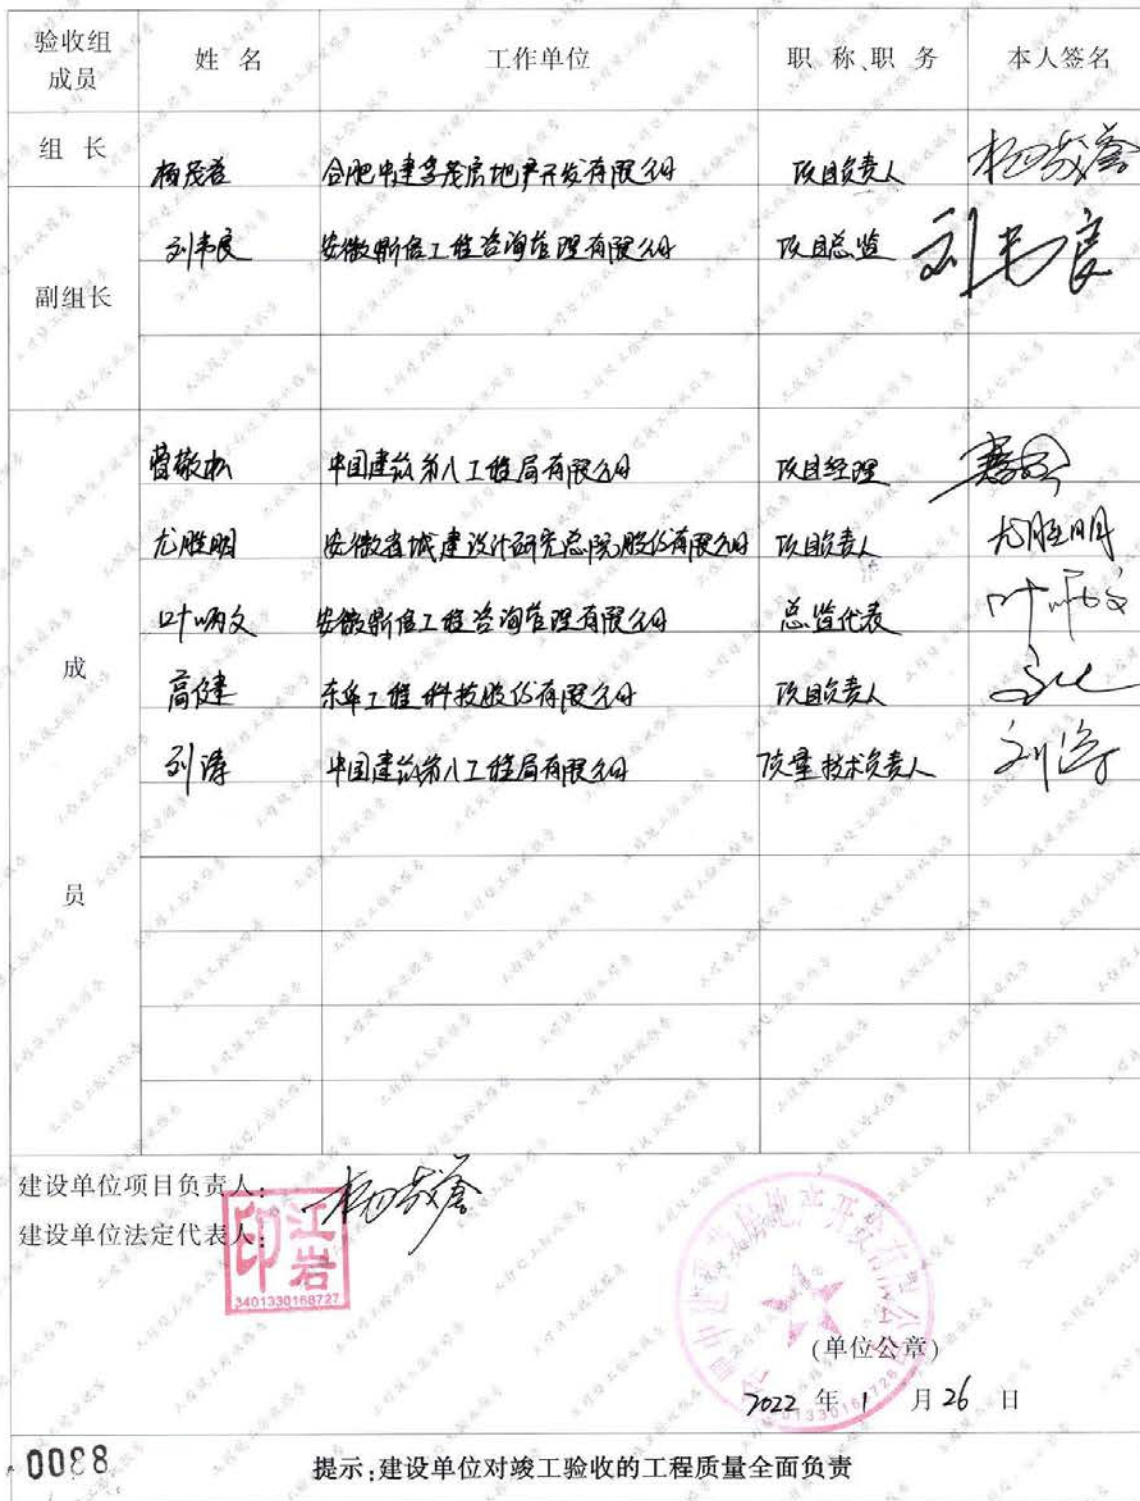 验收组成员 姓 名 工作单位 职 称、职 务 本人签名
组 长 杨茂 合肥中建 茂房地产开发有限公司 项目负责人
副组长 刘韦良 安徽鼎信工程咨询管理有限公司 项目总监 刘韦良
成员
曹敬松 中国建筑第八工程局有限公司 项目经理
尤胜明 安徽省城建设计研究总院股份有限公司 项目负责人 尤胜明
叶炳文 安徽鼎信工程咨询管理有限公司 总监代表 叶炳文
高健 东华工程科技股份有限公司 项目负责人
刘涛 中国建筑第八工程局有限公司 质量技术负责人 刘涛
建设单位项目负责人:
建设单位法定代表人:
江岩印
3401330168727
房地产开发有限公司
(单位公章)
2022 年 1 月 26 日
0088
提示:建设单位对竣工验收的工程质量全面负责
工程竣工验收报告